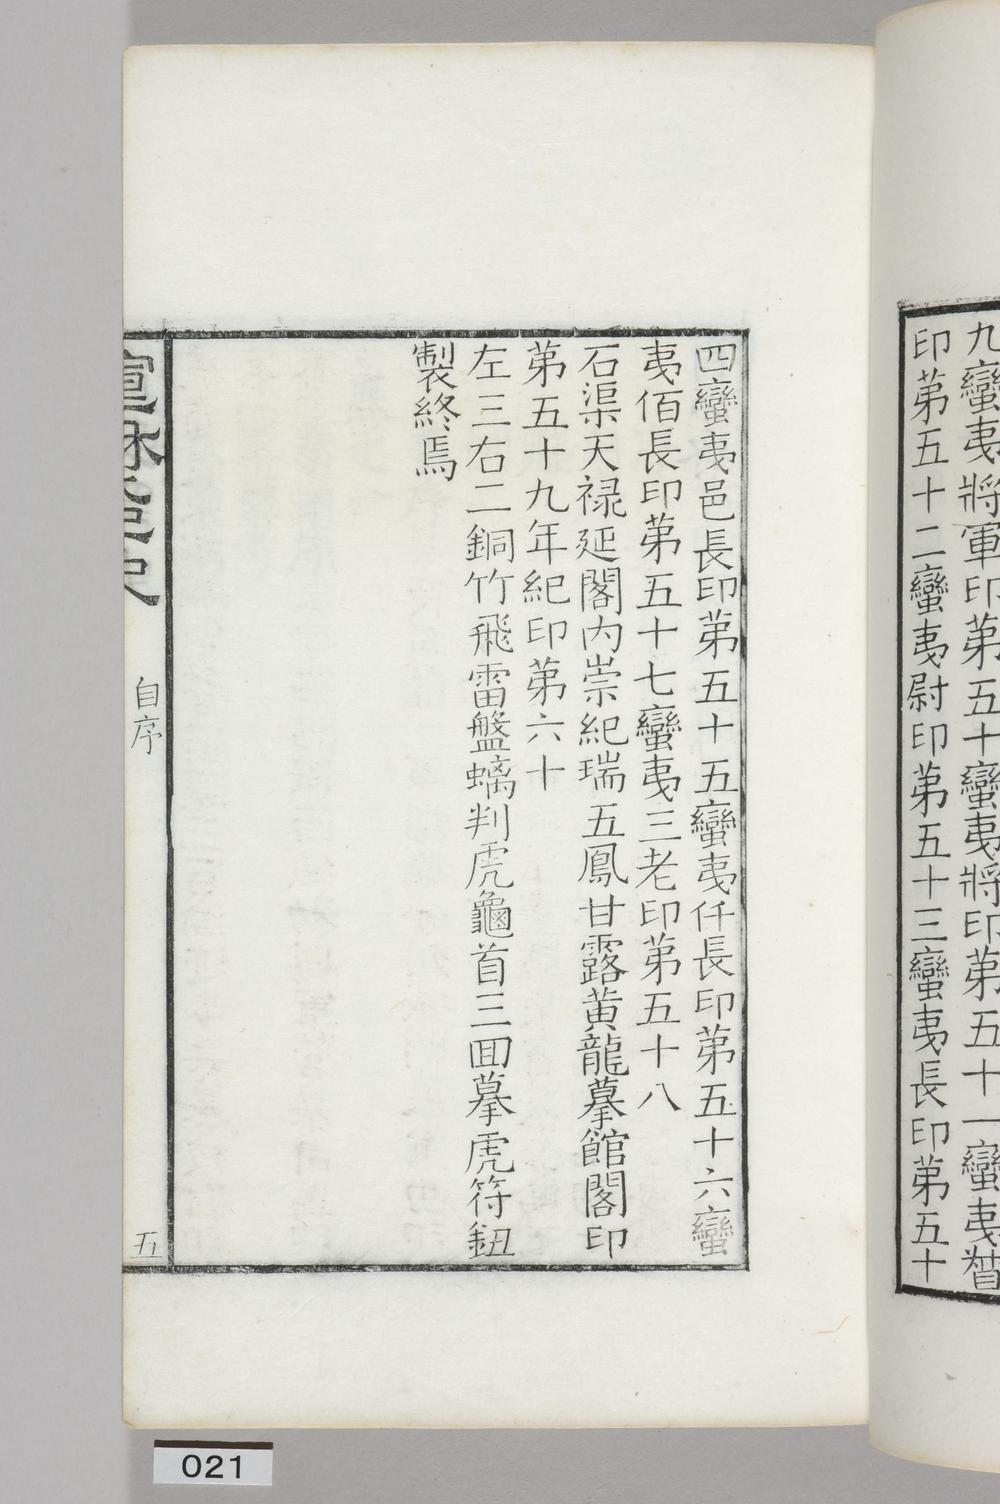 九蠻夷將軍印第五十蠻夷將印第五十一蠻夷
印第五十二蠻夷尉印第五十三蠻夷長印第五十
四蠻夷邑長印第五十五蠻夷仟長印第五十六蠻
夷佰長印第五十七蠻夷三老印第五十八
石渠天禄延閣内崇紀瑞五鳳甘露黄龍摹館閣印
第五十九年紀印第六十
左三右二銅竹飛雷盤螭判虎龜首三囬摹虎符鈕
製終焉
自序
五
021